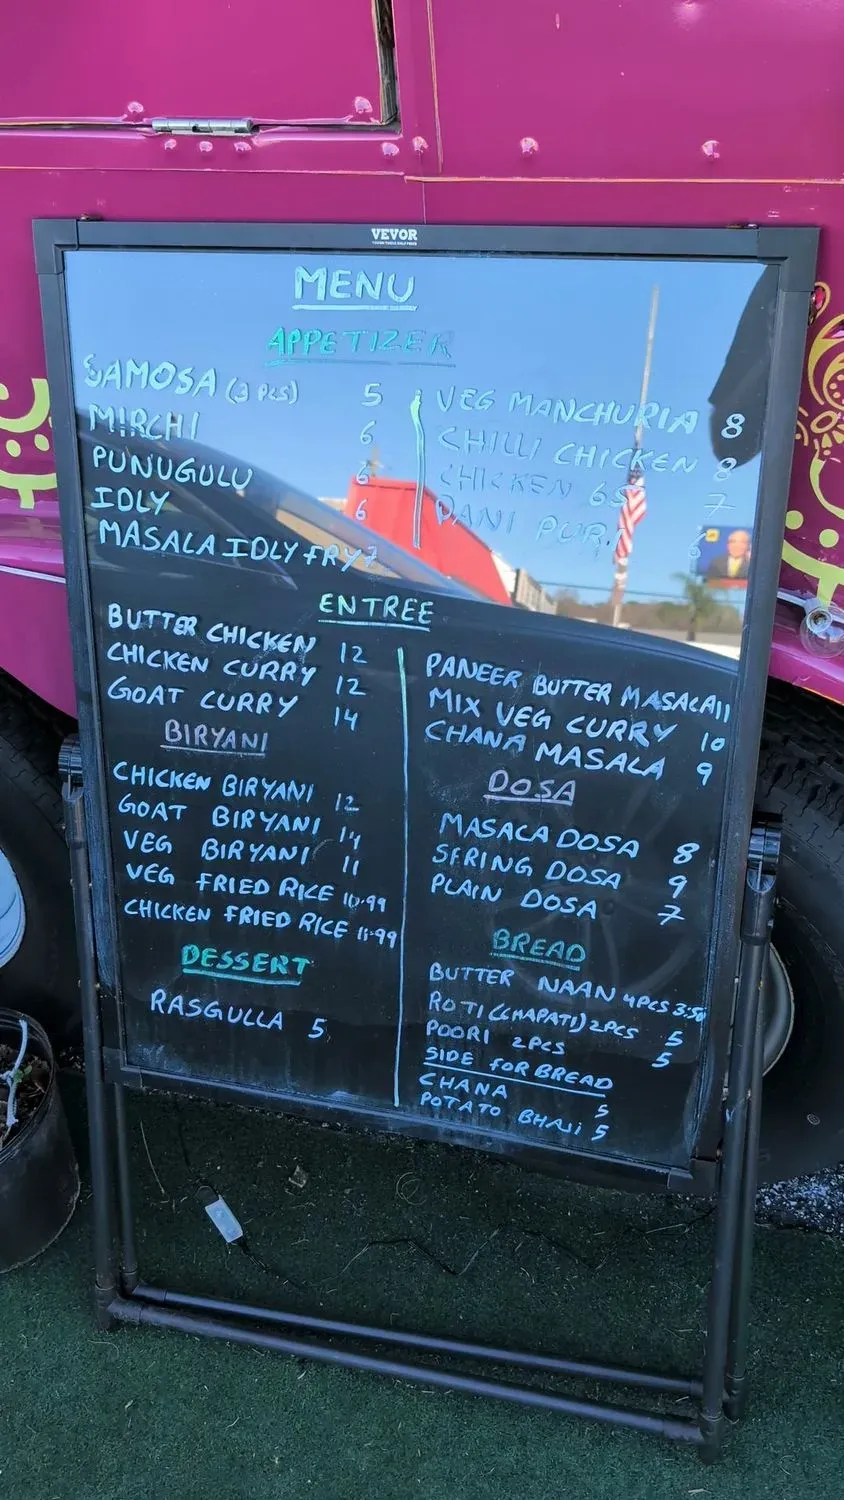 VEVOR
MENU
APPETIZER
SAMOSA (3 PCS) 5
MIRCHI 6
PUNUGULU 6
IDLY 6
MASALA IDLY FRY 7
VEG MANCHURIA 8
CHILLI CHICKEN 8
CHICKEN 65 7
PANI PURI 6
ENTREE
BUTTER CHICKEN 12
CHICKEN CURRY 12
GOAT CURRY 14
BIRYANI
CHICKEN BIRYANI 12
GOAT BIRYANI 14
VEG BIRYANI 11
VEG FRIED RICE 10.99
CHICKEN FRIED RICE 11.99
DESSERT
RASGULLA 5
PANEER BUTTER MASALA 11
MIX VEG CURRY 10
CHANA MASALA 9
DOSA
MASALA DOSA 8
SPRING DOSA 9
PLAIN DOSA 7
BREAD
BUTTER NAAN 4PCS 3.50
ROTI (CHAPATI) 2PCS 5
POORI 2PCS 5
SIDE FOR BREAD
CHANA 5
POTATO BHAJI 5